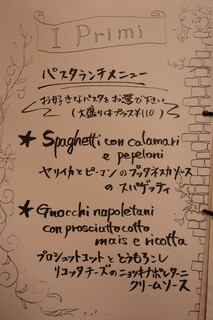 I Primi
パスタランチメニュー
お好きなパスタをお選び下さい
(大盛りはプラス¥110)
★ Spaghetti con calamari
e pepeloni
ヤリイカとピーマンのプッタネスカソースの
スパゲッティ
★ Gnocchi napoletani
con prosciutto cotto
mais e ricotta
プロシュットコットととうもろこし
リコッタチーズのニョッキナポレターニ
クリームソース